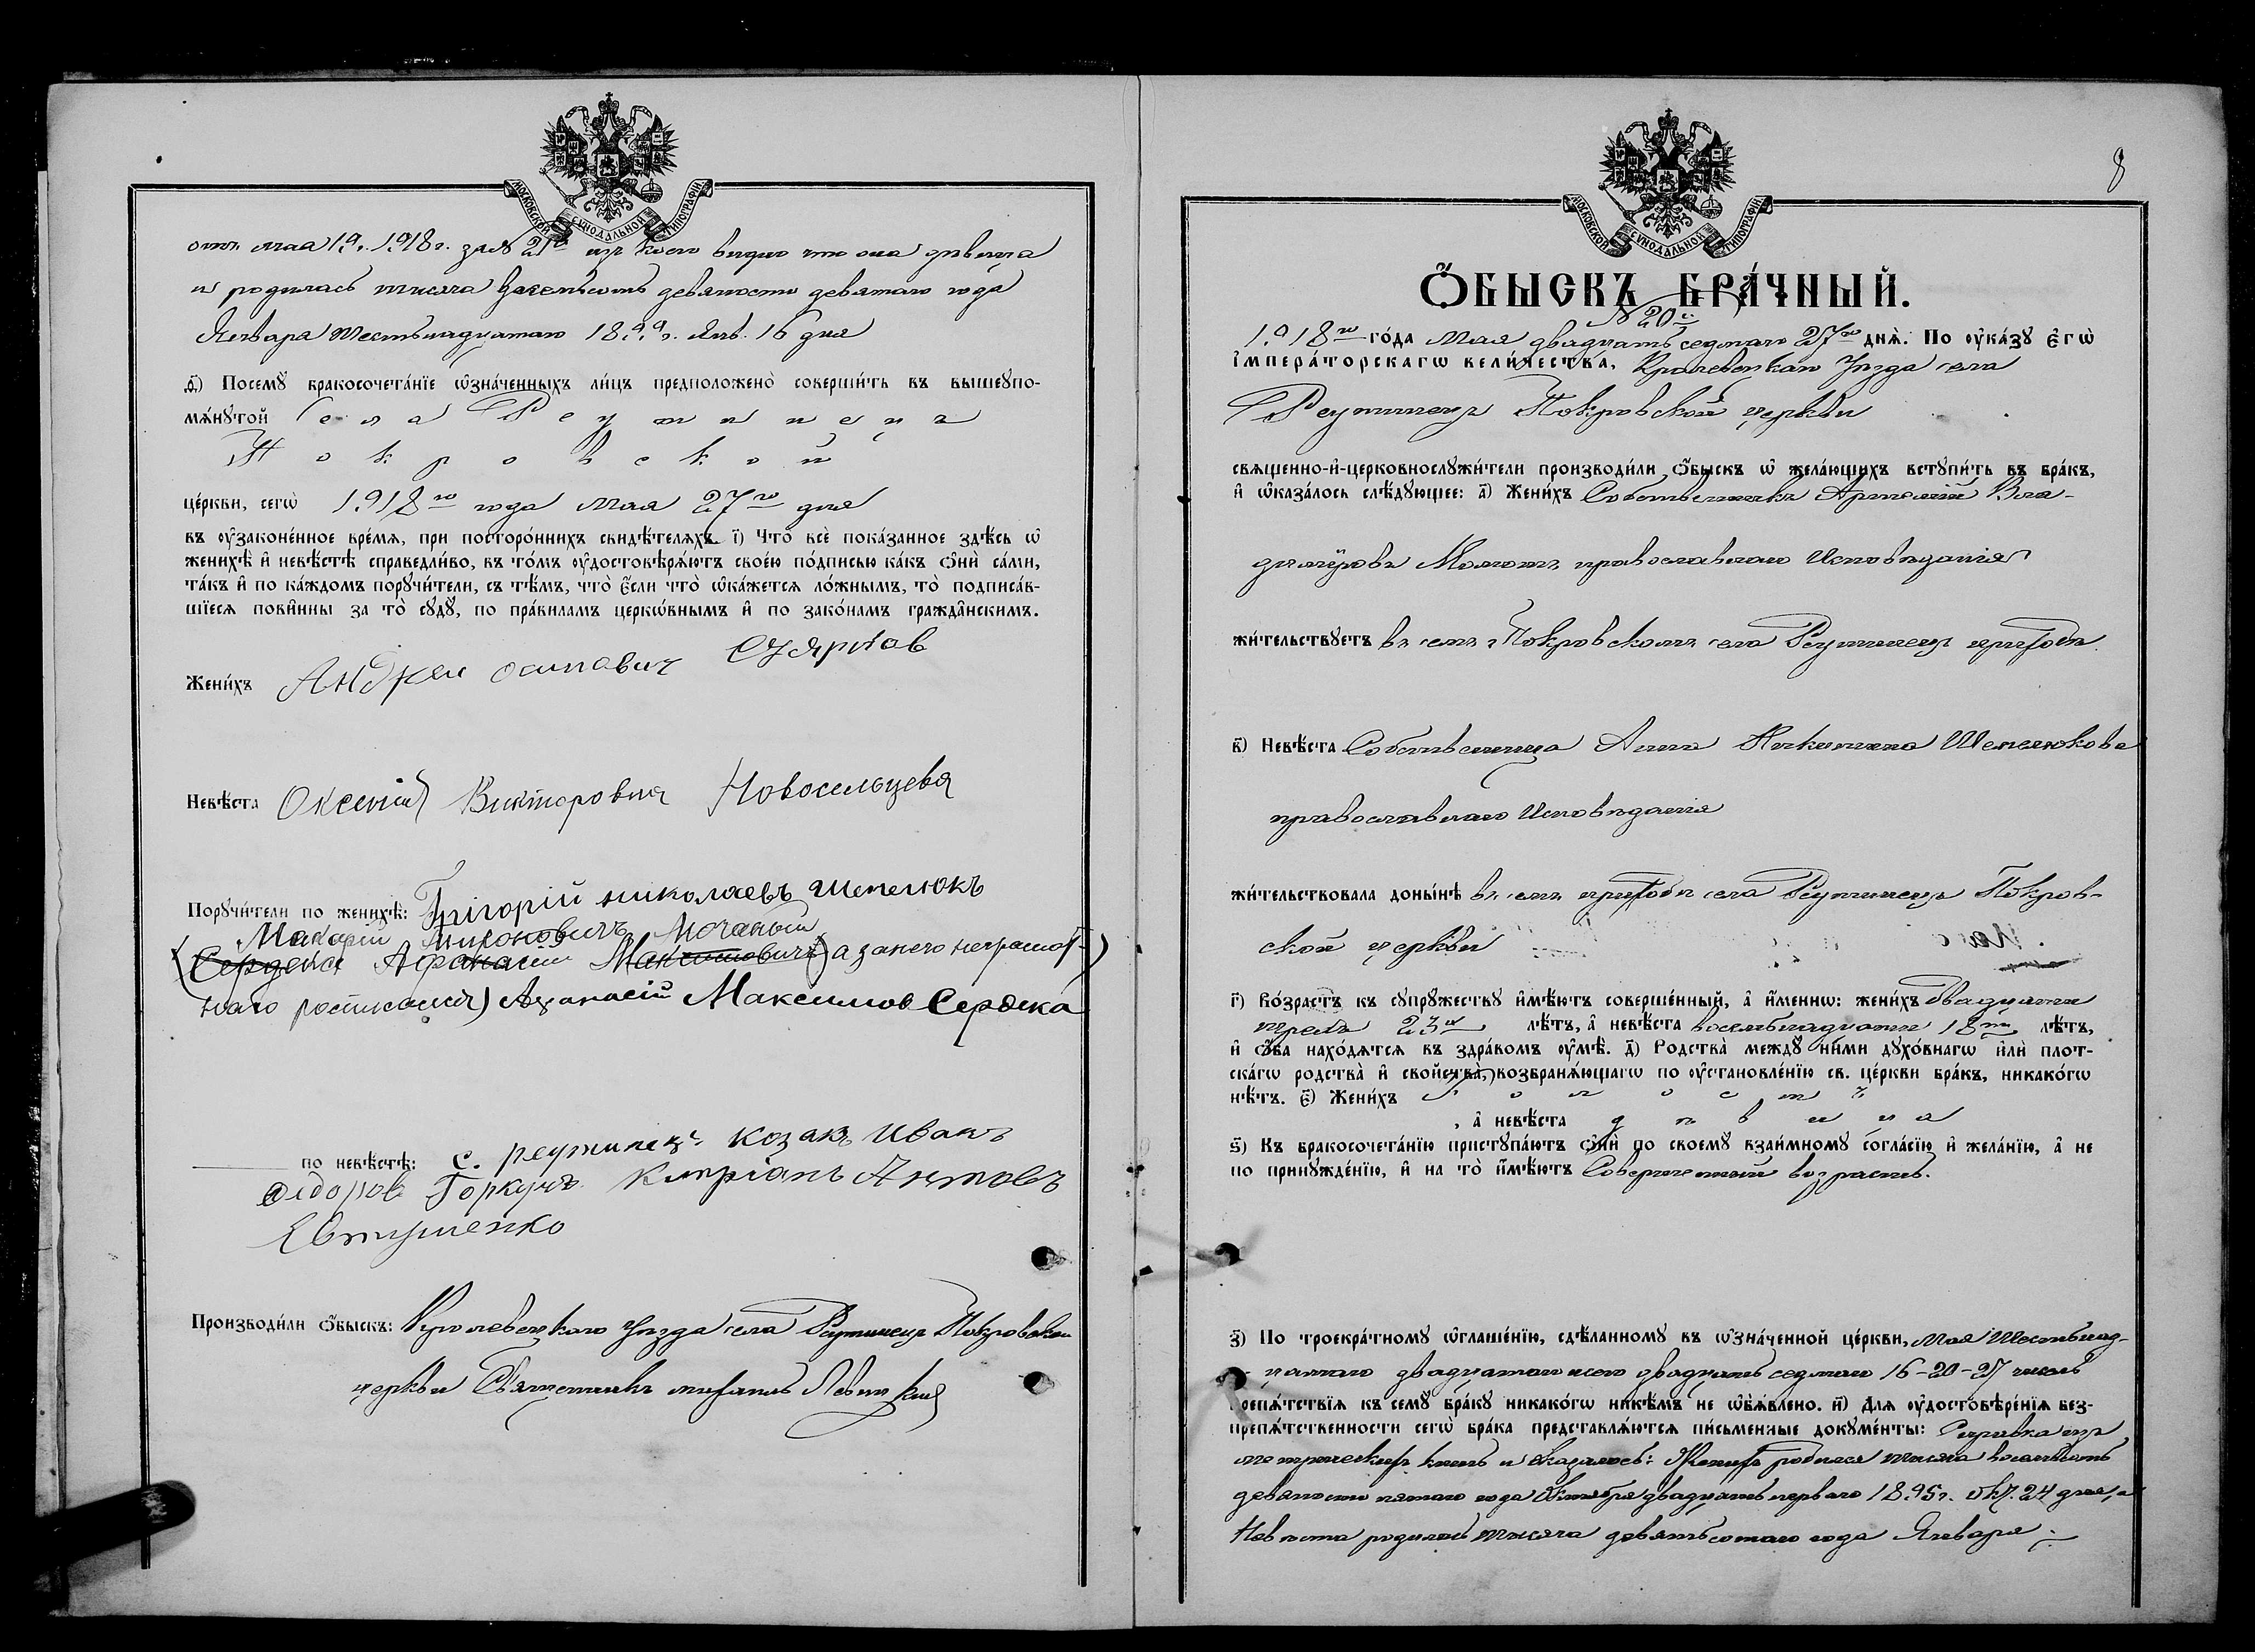 МОСКОВСКОЙ СѴНОДАЛЬНОЙ ТИПОГРАФІИ
отъ мая 19. 1918 г. за № 21 изъ коего видно что она дѣвица
и родилась тысяча восемьсотъ девяносто девятаго года
Января шестьнадцатаго 1899 г. Янв. 16 дня
д҃і) Посемꙋ̀ бракосочета́нїе ѡ҆зна́ченныхъ ли́цъ предположено̀ соверши́ть въ вышеꙋпо-
мѧ́нꙋтой села Реутинецъ
Покровской
це́ркви, сегѡ̀ 1918го года мая 27го дня
въ ᲂу҆законе́нное вре́мѧ, при посторо́ннихъ свидѣ́телѧхъ. і҃) Что̀ всѐ пока́занное здѣ́сь ѡ҆
женихѣ̀ и҆ невѣ́стѣ справедли́во, въ то́мъ ᲂу҆достовѣрѧ́ютъ свое́ю по́дписью ка́къ ѻ҆нѝ са́ми,
та́къ и҆ по ка́ждомъ порꙋчи́тели, съ тѣ́мъ, что̀ є҆́сли что̀ ѡ҆ка́жетсѧ ло́жнымъ, то̀ подписа́в-
шїесѧ пови́нны за то̀ сꙋдꙋ̀, по пра́виламъ церкѡ́внымъ и҆ по зако́намъ гражда̂нскимъ.
Жени́хъ Андреи осиповичъ
Невѣ́ста Оксенія Викторовна Новосельцева
Порꙋчи́тели по женихѣ̀: Григорій николаевъ шепелюкъ
Макарій
(Сердека Афанасіи Максимовичъ) а за него неграмот-
наго росписался) Афанасій Максимов Сердека
по невѣ́стѣ: с. реутинецъ козакъ Иванъ
Фіодоровъ Горкунъ Кипріанъ Антовъ
Евтушенко
Производи́ли ѻ҆́быскъ: Кролевецкаго Уѣзда села Реутинецъ Покровской
церкви Священникъ Михаилъ Левицкій
8
МОСКОВСКОЙ СѴНОДАЛЬНОЙ ТИПОГРАФІИ
Ѻ҆́БЫСКЪ БРА́ЧНЫЙ.
№ 20
1918го го́да Мая двадцать седьмаго 27го днѧ̀. По ᲂу҆ка́зꙋ є҆гѡ̀
і҆мпера́торскагѡ вели́чества, Кролевецкаго Уѣзда села
Реутинецъ Покровской церкви
свѧще́нно-и҆-церковнослꙋжи́тели производи́ли ѻ҆́быскъ ѡ҆ жела́ющихъ вступи́ть въ бра́къ,
и҆ ѡ҆каза́лось слѣ́дꙋющее: а҃) Жени́хъ Собственникъ Артемій Вла-
диміровъ православнаго Исповѣданія
жи́тельствꙋетъ въ семъ Покровскомъ села Реутинецъ приходѣ
в҃) Невѣ́ста Собственница Анна Никитина Шепелюкова
православнаго Исповѣданія
жи́тельствовала доны́нѣ въ семъ приходѣ села Реутинецъ Покров-
ской церкви
г҃) Во́зрастъ къ сꙋпрꙋ́жествꙋ и҆мѣ́ютъ соверше́нный, а҆ и҆́меннѡ: жени́хъ двадцати
трехъ 23х лѣ́тъ, а҆ невѣ́ста восемьнадцати 18ти лѣ́тъ,
и҆ ѻ҆́ба нахо́дѧтсѧ въ здра́вомъ ᲂу҆мѣ̀. д҃) Родства̀ междꙋ̀ ни́ми дꙋхо́внагѡ и҆лѝ плот-
ска́гѡ родства̀ и҆ свойства̀, возбранѧ́ющагѡ по ᲂу҆становле́нїю св. це́ркви бра́къ, никако́гѡ
нѣ́тъ. є҃) Жени́хъ холостъ
, а҆ невѣ́ста дѣвица
ѕ҃) Къ бракосочета́нїю пристꙋпа́ютъ ѻ҆нѝ по своемꙋ̀ взаи́мномꙋ согла́сїю и҆ жела́нїю, а҆ не
по принꙋжде́нїю, и҆ на то̀ и҆мѣ́ютъ Совершенный возрастъ.
з҃) По троекра́тномꙋ ѡ҆глаше́нїю, сдѣ́ланномꙋ въ ѡ҆зна́ченной це́ркви, Мая Шестьнад-
цатаго двадцатаго и сего двадцать седьмаго 16-20-27 числъ
препѧ́тствїѧ къ семꙋ̀ бра́кꙋ никако́гѡ никѣ́мъ не ѡ҆б̾ѧ́влено. и҃) Для ᲂу҆достовѣре́нїѧ без-
препѧ́тственности сегѡ̀ бра́ка представлѧ́ютсѧ пи́сьменные докꙋме́нты: Справка изъ
метрическихъ книгъ и оказалось: Женихъ родился тысяча восемьсотъ
девяносто пятаго года Октября двадцать перваго 1895 г. Окт. 24 дня, а
Невѣста родилась тысяча девятьсотаго года Января